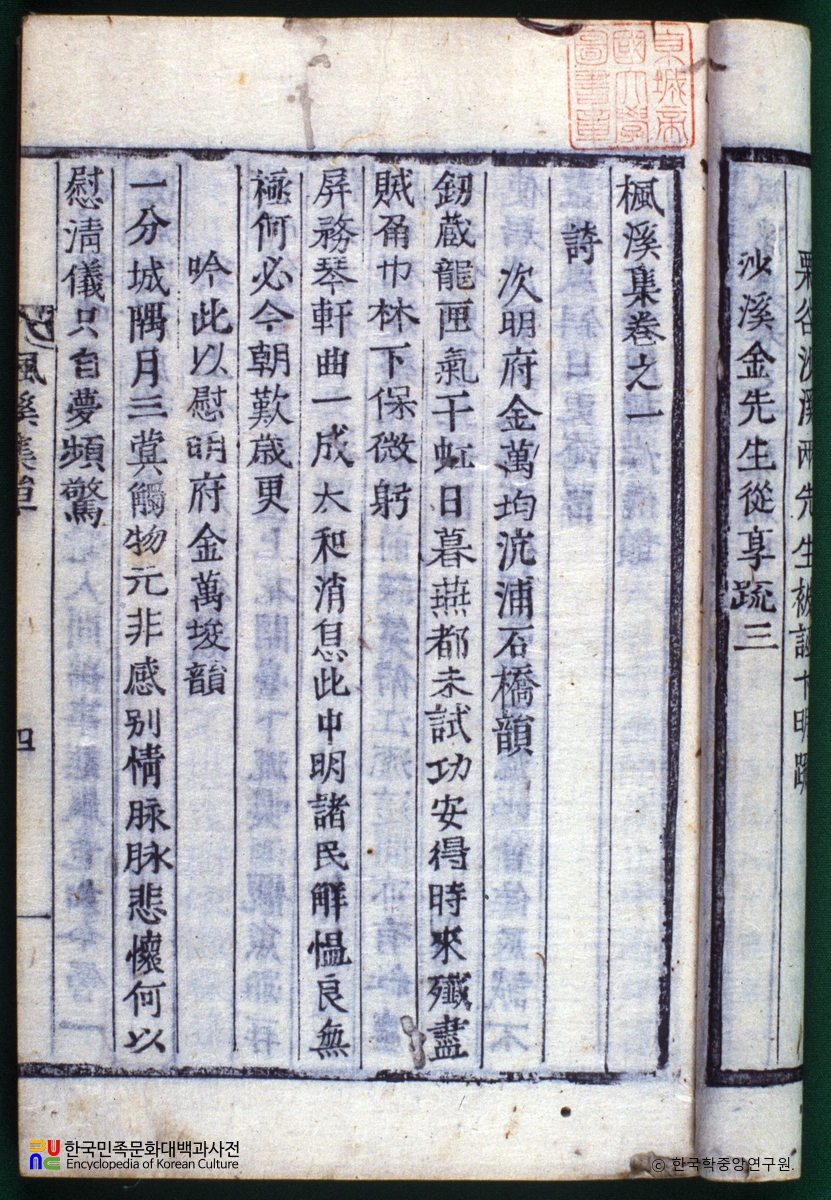 栗谷沙溪兩先生被誣卞明疏
沙溪金先生從享疏三
京城帝
國大學
圖書章
楓溪集卷之一
詩
次明府金萬均沆浦石橋韻
釰蔵龍匣氣干虹日暮燕都未試功安得時來殲盡
賊畨巾林下保微躬
屏務琴軒曲一成太和消息此中明諸民解慍良無
極何必今朝歎歲更
吟此以慰明府金萬埈韻
一分城隅月三蓂觸物元非感别情脉脉悲懷何以
慰清儀只自夢頻驚
楓溪集
한국민족문화대백과사전
Encyclopedia of Korean Culture
© 한국학중앙연구원.